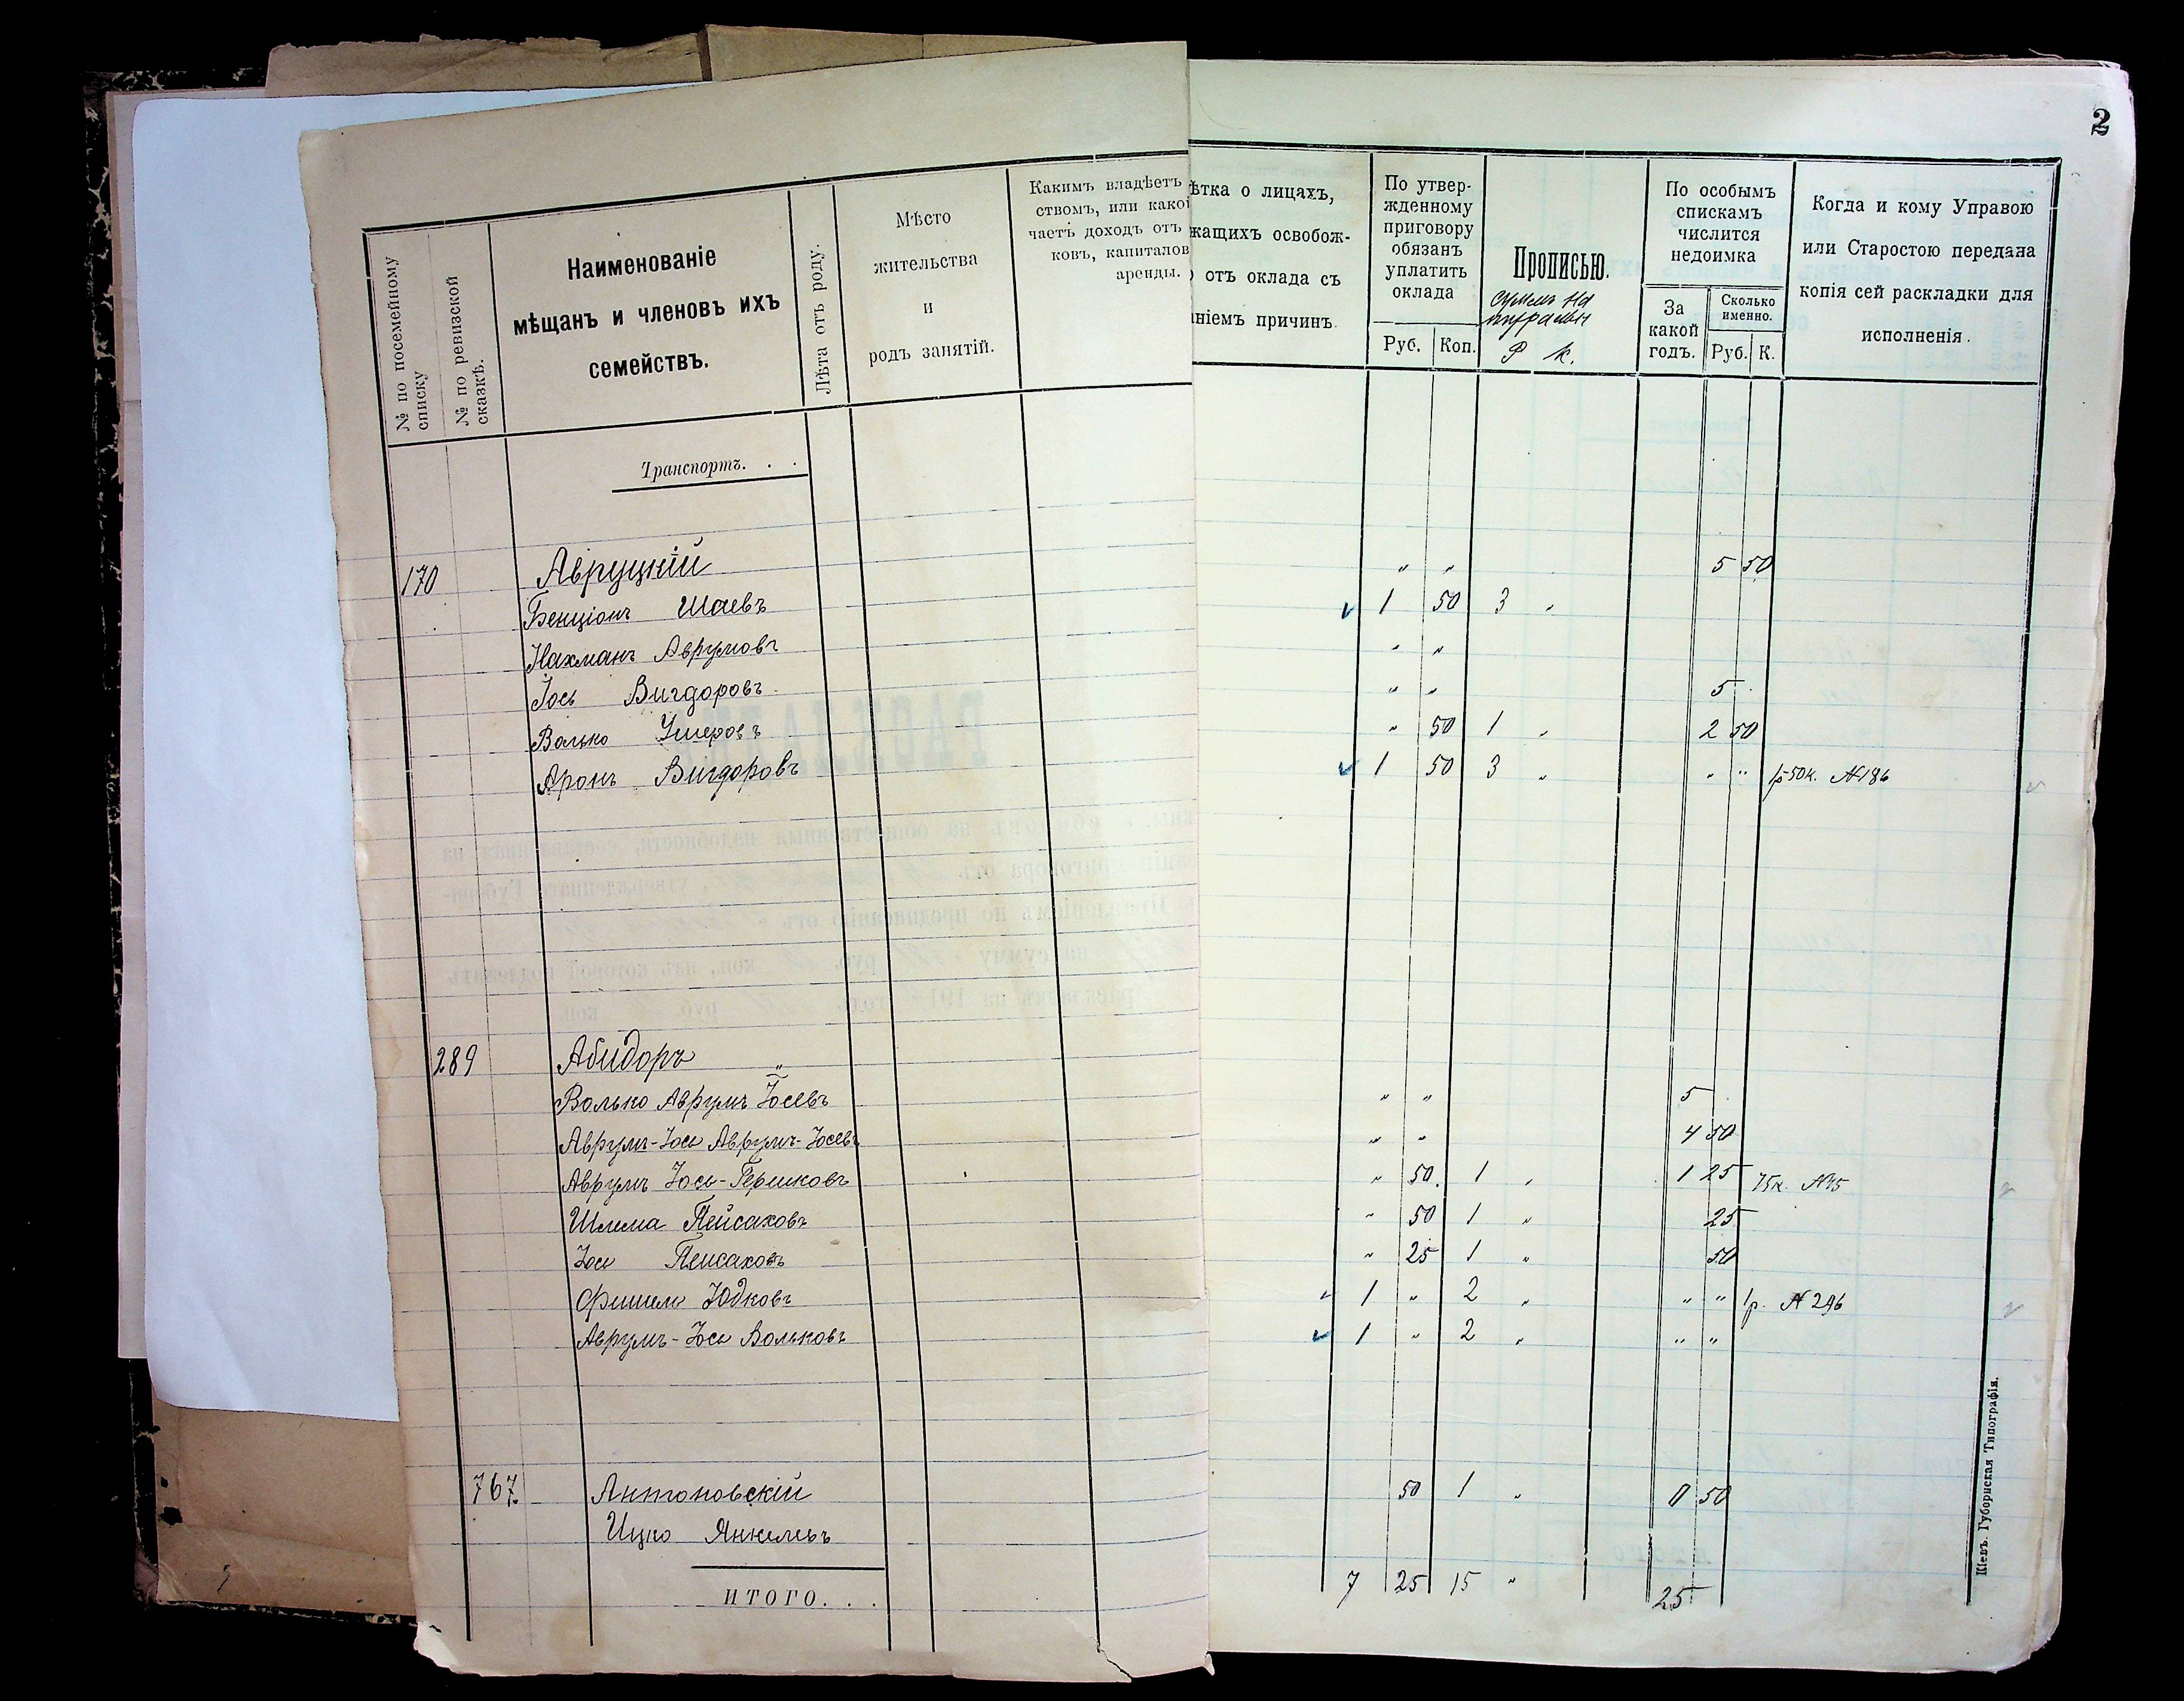 2
№ по посемейному списку
№ по ревизской сказкѣ.
Наименованіе
мѣщанъ и членовъ ихъ
семействъ.
Лѣта отъ роду.
Мѣсто
жительства
и
родъ занятій.
Какимъ владѣетъ
ствомъ, или какой
чаетъ доходъ отъ
ковъ, капиталов
аренды.
ѣтка о лицахъ,
жащихъ освобож-
отъ оклада съ
ніемъ причинъ
По утвер-
жденному
приговору
обязанъ
уплатить
оклада
Руб. Коп.
Прописью.
Р к.
По особымъ
спискамъ
числится
недоимка
За
какой
годъ.
Сколько
именно.
Руб. К.
Когда и кому Управою
или Старостою передана
копія сей раскладки для
исполненія.
Транспортъ. . .
170 Авруцкій " " 5 50
Бенціонъ Шаевъ 1 50 3 "
Нахманъ Аврумовъ " "
Іось Вигдоровъ " " 5
Волько Ушеровъ " 50 1 " 2 50
Аронъ Вигдоровъ 1 50 3 " " " 1р 50к. № 186
289 Абидоръ "
Волько Аврумъ Іосевъ " " 5
Аврумъ-Іось Аврумъ-Іосевъ " " 4 50
Аврумъ Іось-Гершковъ " 50. 1 " 1 25 75к. № 45
Шлема Пейсаховъ " 50 1 " 25
Іось Пейсаховъ " 25 1 " 50
Фишель Юдковъ 1 " 2 " " " 1р. № 296
Аврумъ-Іось Вольковъ 1 " 2 " " "
767. Антоновскій 50 1 " 0 50
Ицко Янкелевъ
ИТОГО. . . 7 25 15 " 25
Кіевъ. Губернская Типографія.